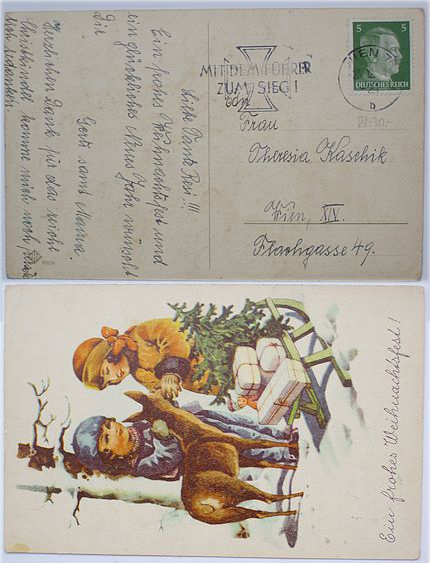 Liebe Tante Resi!!!
Ein frohes Weihnachtsfest und
ein glückliches Neues Jahr wünscht
Dir
Gerti samt Mama.
Herzlichen Dank für das
Christkindl komme mich noch
bedanken.
1004
MIT DEM FÜHRER
ZUM SIEG!
WIEN
b
5 5
DEUTSCHES REICH
An
Frau
Theresia Kaschik
Wien, XIV.
Flachgasse 49.
Ein frohes Weihnachtsfest!